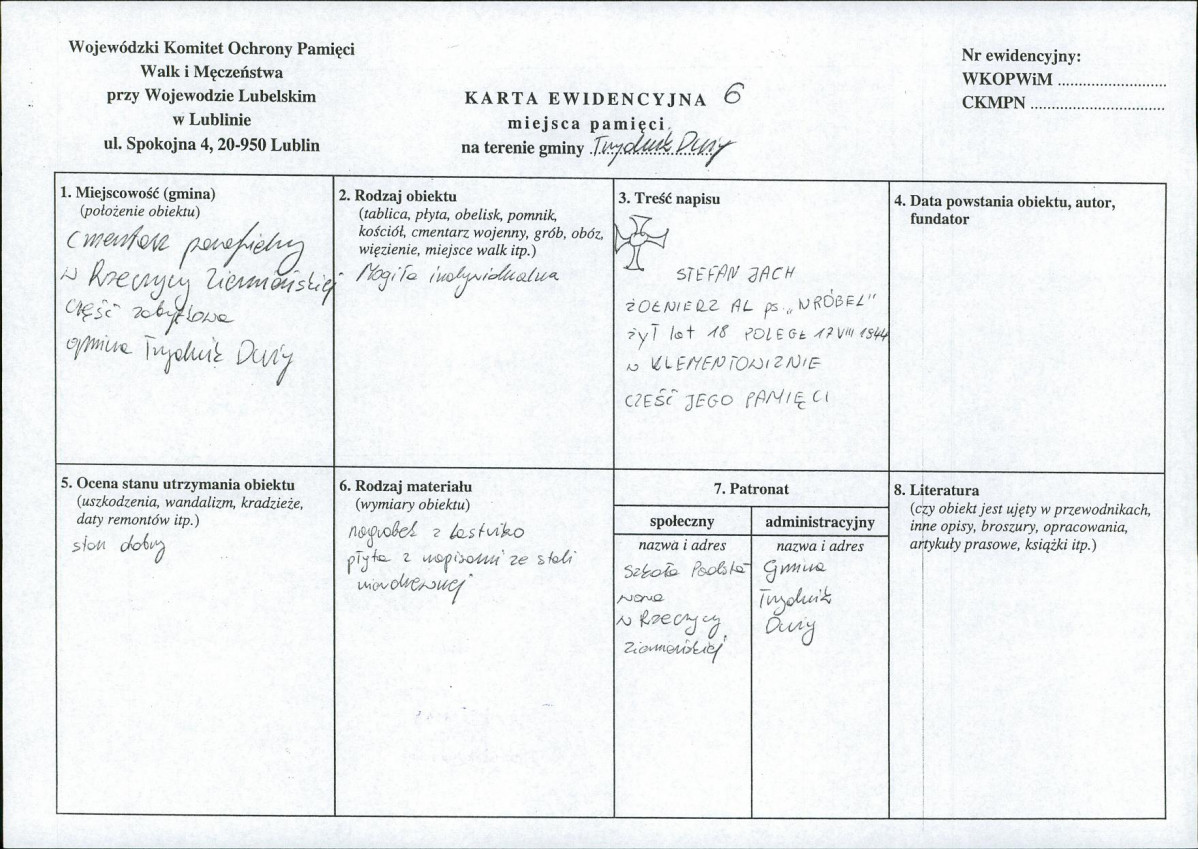 Wojewódzki Komitet Ochrony Pamięci
Walk i Męczeństwa
przy Wojewodzie Lubelskim
w Lublinie
ul. Spokojna 4, 20-950 Lublin
KARTA EWIDENCYJNA 6
miejsca pamięci
na terenie gminy Trzydnik Duży
Nr ewidencyjny:
WKOPWiM ..........................
CKMPN ................................
1. Miejscowość (gmina)
(położenie obiektu)
Cmentarz parafialny
w Rzeczycy Ziemiańskiej
część zabytkowa
gmina Trzydnik Duży
2. Rodzaj obiektu
(tablica, płyta, obelisk, pomnik,
kościół, cmentarz wojenny, grób, obóz,
więzienie, miejsce walk itp.)
Mogiła indywidualna
3. Treść napisu
STEFAN JACH
ŻOŁNIERZ AL ps. „WRÓBEL"
żył lat 18 POLEGŁ 17 VIII 1944
w KLEMENTOWIZNIE
CZEŚĆ JEGO PAMIĘCI
4. Data powstania obiektu, autor,
fundator
5. Ocena stanu utrzymania obiektu
(uszkodzenia, wandalizm, kradzieże,
daty remontów itp.)
stan dobry
6. Rodzaj materiału
(wymiary obiektu)
nagrobek z lastriko
płyta z napisami ze stali
nierdzewnej
7. Patronat
społeczny
nazwa i adres
Szkoła Podsta
wowa
w Rzeczycy
Ziemiańskiej
administracyjny
nazwa i adres
Gmina
Trzydnik
Duży
8. Literatura
(czy obiekt jest ujęty w przewodnikach,
inne opisy, broszury, opracowania,
artykuły prasowe, książki itp.)